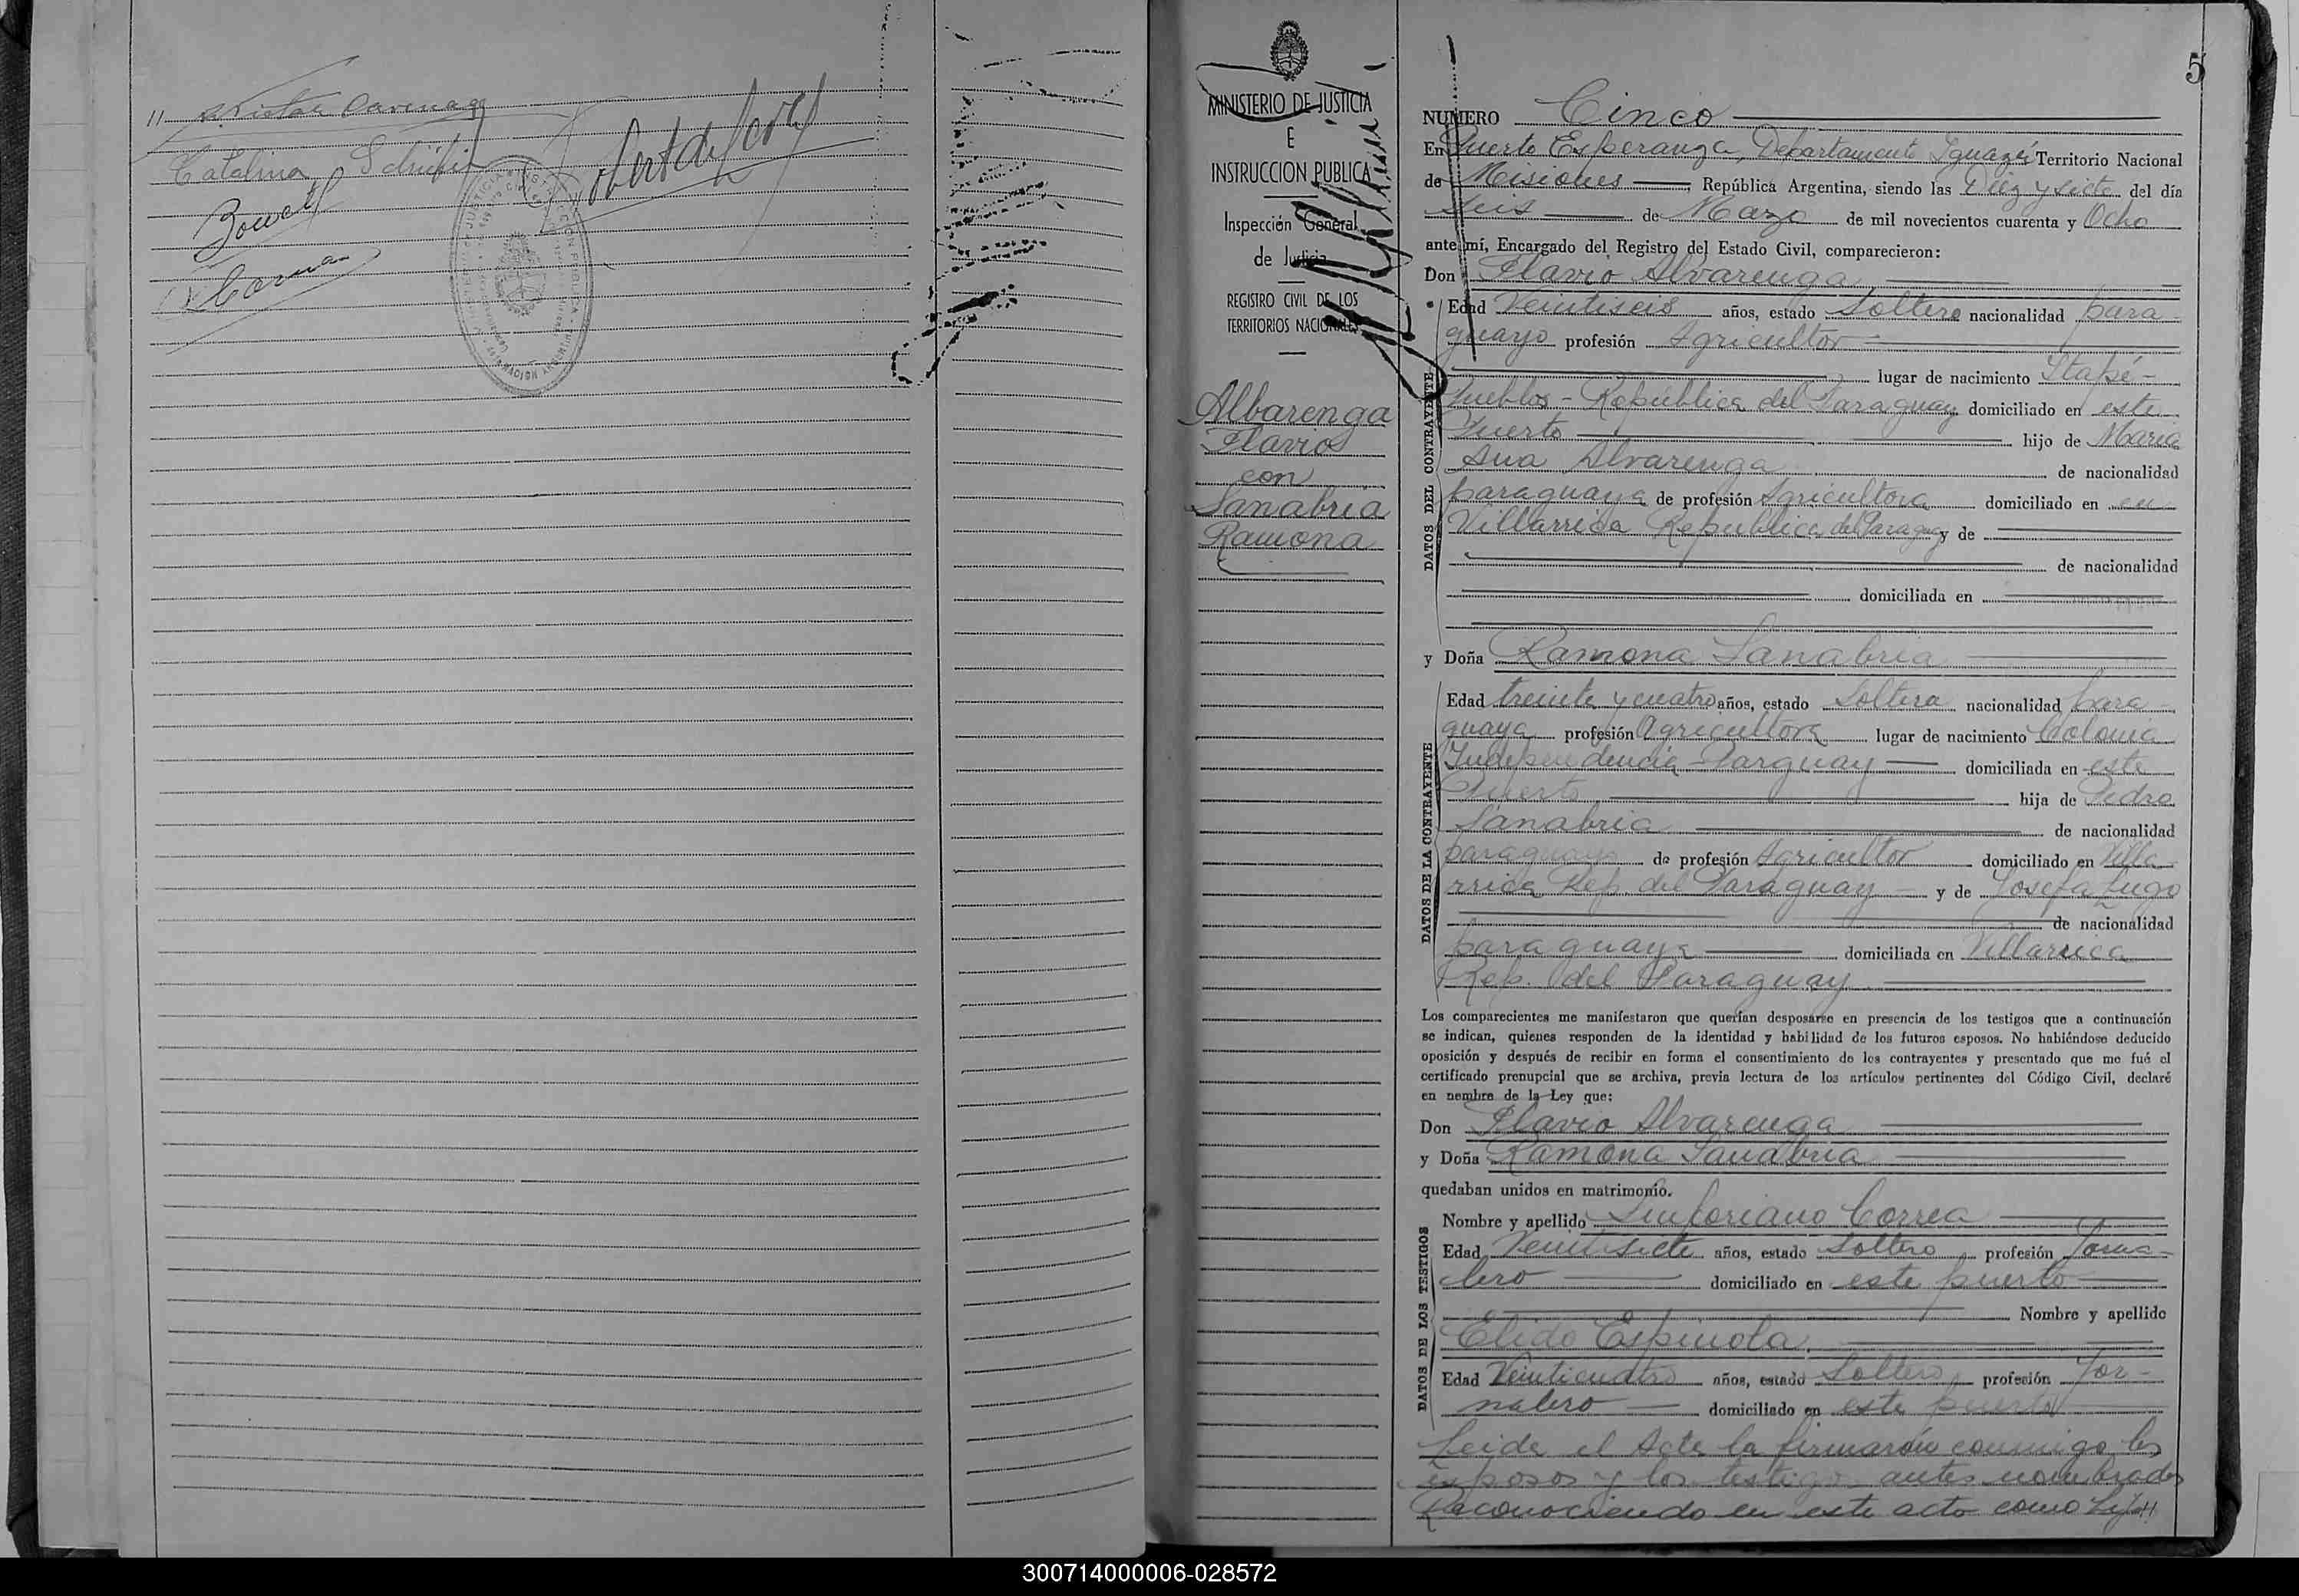 Catalina
MINISTERIO DE JUSTICIA
E
INSTRUCCION PUBLICA
Inspección General
de Justicia
REGISTRO CIVIL DE LOS
TERRITORIOS NACIONALES
Albarenga
Flavio
con
Sanabria
Ramona
5
NUMERO Cinco
En Puerto Esperanza, Departamento Iguazú Territorio Nacional
de Misiones, República Argentina, siendo las Diez y siete del día
Seis de Marzo de mil novecientos cuarenta y Ocho
ante mí, Encargado del Registro del Estado Civil, comparecieron:
Don Flavio Alvarenga
DATOS DEL CONTRAYENTE
Edad Veintiseis años, estado Soltero nacionalidad para-
guayo profesión Agricultor
lugar de nacimiento Itapé-
Pueblos - Republica del Paraguay domiciliado en este
Puerto hijo de Maria
Ana Alvarenga de nacionalidad
paraguaya de profesión Agricultora domiciliado en en
Villarrica Republica del Paraguay y de
de nacionalidad
domiciliada en
y Doña Ramona Sanabria
DATOS DE LA CONTRAYENTE
Edad treinta y cuatro años, estado Soltera nacionalidad para-
guaya profesión Agricultora lugar de nacimiento Colonia
Independencia - Parguay domiciliada en este
Puerto hija de Pedro
Sanabria de nacionalidad
paraguayo de profesión Agricultor domiciliado en Villa-
rrica Rep. del Paraguay y de Josefa Lugo
de nacionalidad
paraguaya domiciliada en Villarrica
Rep. del Paraguay
Los comparecientes me manifestaron que querían desposarse en presencia de los testigos que a continuación
se indican, quienes responden de la identidad y habilidad de los futuros esposos. No habiéndose deducido
oposición y después de recibir en forma el consentimiento de los contrayentes y presentado que me fué el
certificado prenupcial que se archiva, previa lectura de los artículos pertinentes del Código Civil, declaré
en nombre de la Ley que:
Don Flavio Alvarenga
y Doña Ramona Sanabria
quedaban unidos en matrimonio.
DATOS DE LOS TESTIGOS
Nombre y apellido Sinforiano Correa
Edad Veintisiete años, estado Soltero profesión Jorna-
lero domiciliado en este puerto
Nombre y apellido
Elido Espinola
Edad Veinticuatro años, estado Soltero, profesión Jor-
nalero domiciliado en este puerto
Leida el Acta la firmarón conmigo los
esposos y los testigos antes nombrados
Reconociendo en este acto como hijo
300714000006-028572